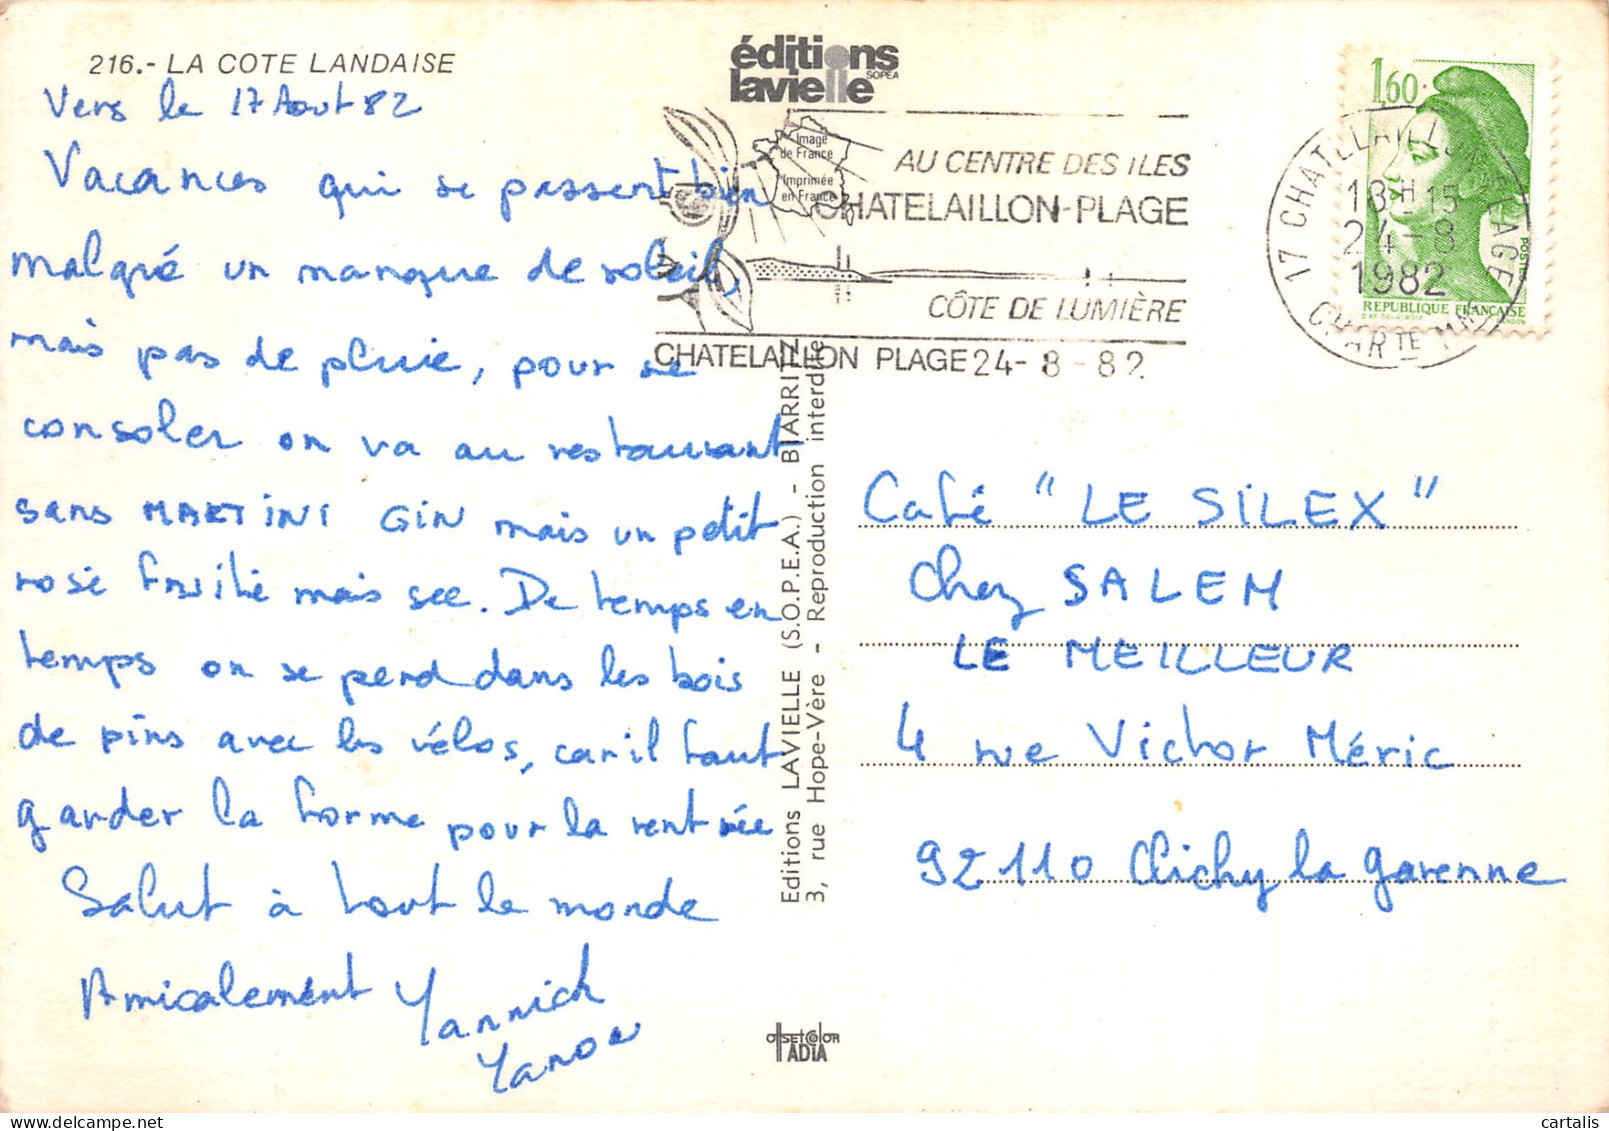 216.- LA COTE LANDAISE
éditions
lavielle
SOPEA
Vers le 17 Aout 82
Vacances qui se passent bien
malgré un manque de soleil,
mais pas de pluie, pour se
consoler on va au restaurant
sans MARTINI GIN mais un petit
rosé fruité mais sec. De temps en
temps on se perd dans les bois
de pins avec les vélos, car il faut
garder la forme pour la rentrée
Salut à tout le monde
Amicalement Yannick
Image
de France
Imprimée
en France
AU CENTRE DES ILES
CHATELAILLON-PLAGE
CÔTE DE LUMIÈRE
CHATELAILLON PLAGE 24-8-82
17 CHATELAILLON PLAGE
18H15
24-8
1982
CHARTE MME
1,60
POSTES
REPUBLIQUE FRANÇAISE
Editions LAVIELLE (S.O.P.E.A.) - BIARRITZ
3, rue Hope-Vère - Reproduction interdite
Café "LE SILEX"
Chez SALEM
LE MEILLEUR
4 rue Victor Méric
92110 Clichy la garenne
offset color
ADIA
cartalis